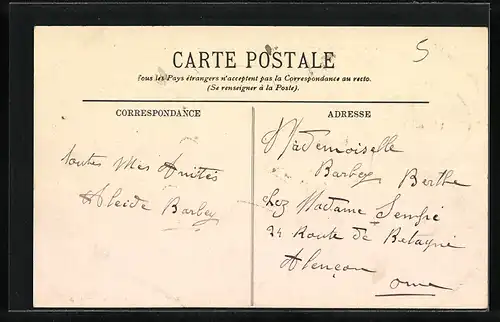 5
CARTE POSTALE
Tous les Pays étrangers n'acceptent pas la Correspondance au recto.
(Se renseigner à la Poste).
CORRESPONDANCE
toutes mes Amitiés
Barbey
ADRESSE
Mademoiselle
Barbey Berthe
chez Madame Sempié
24 Route de Betagne
Alençon
Orne